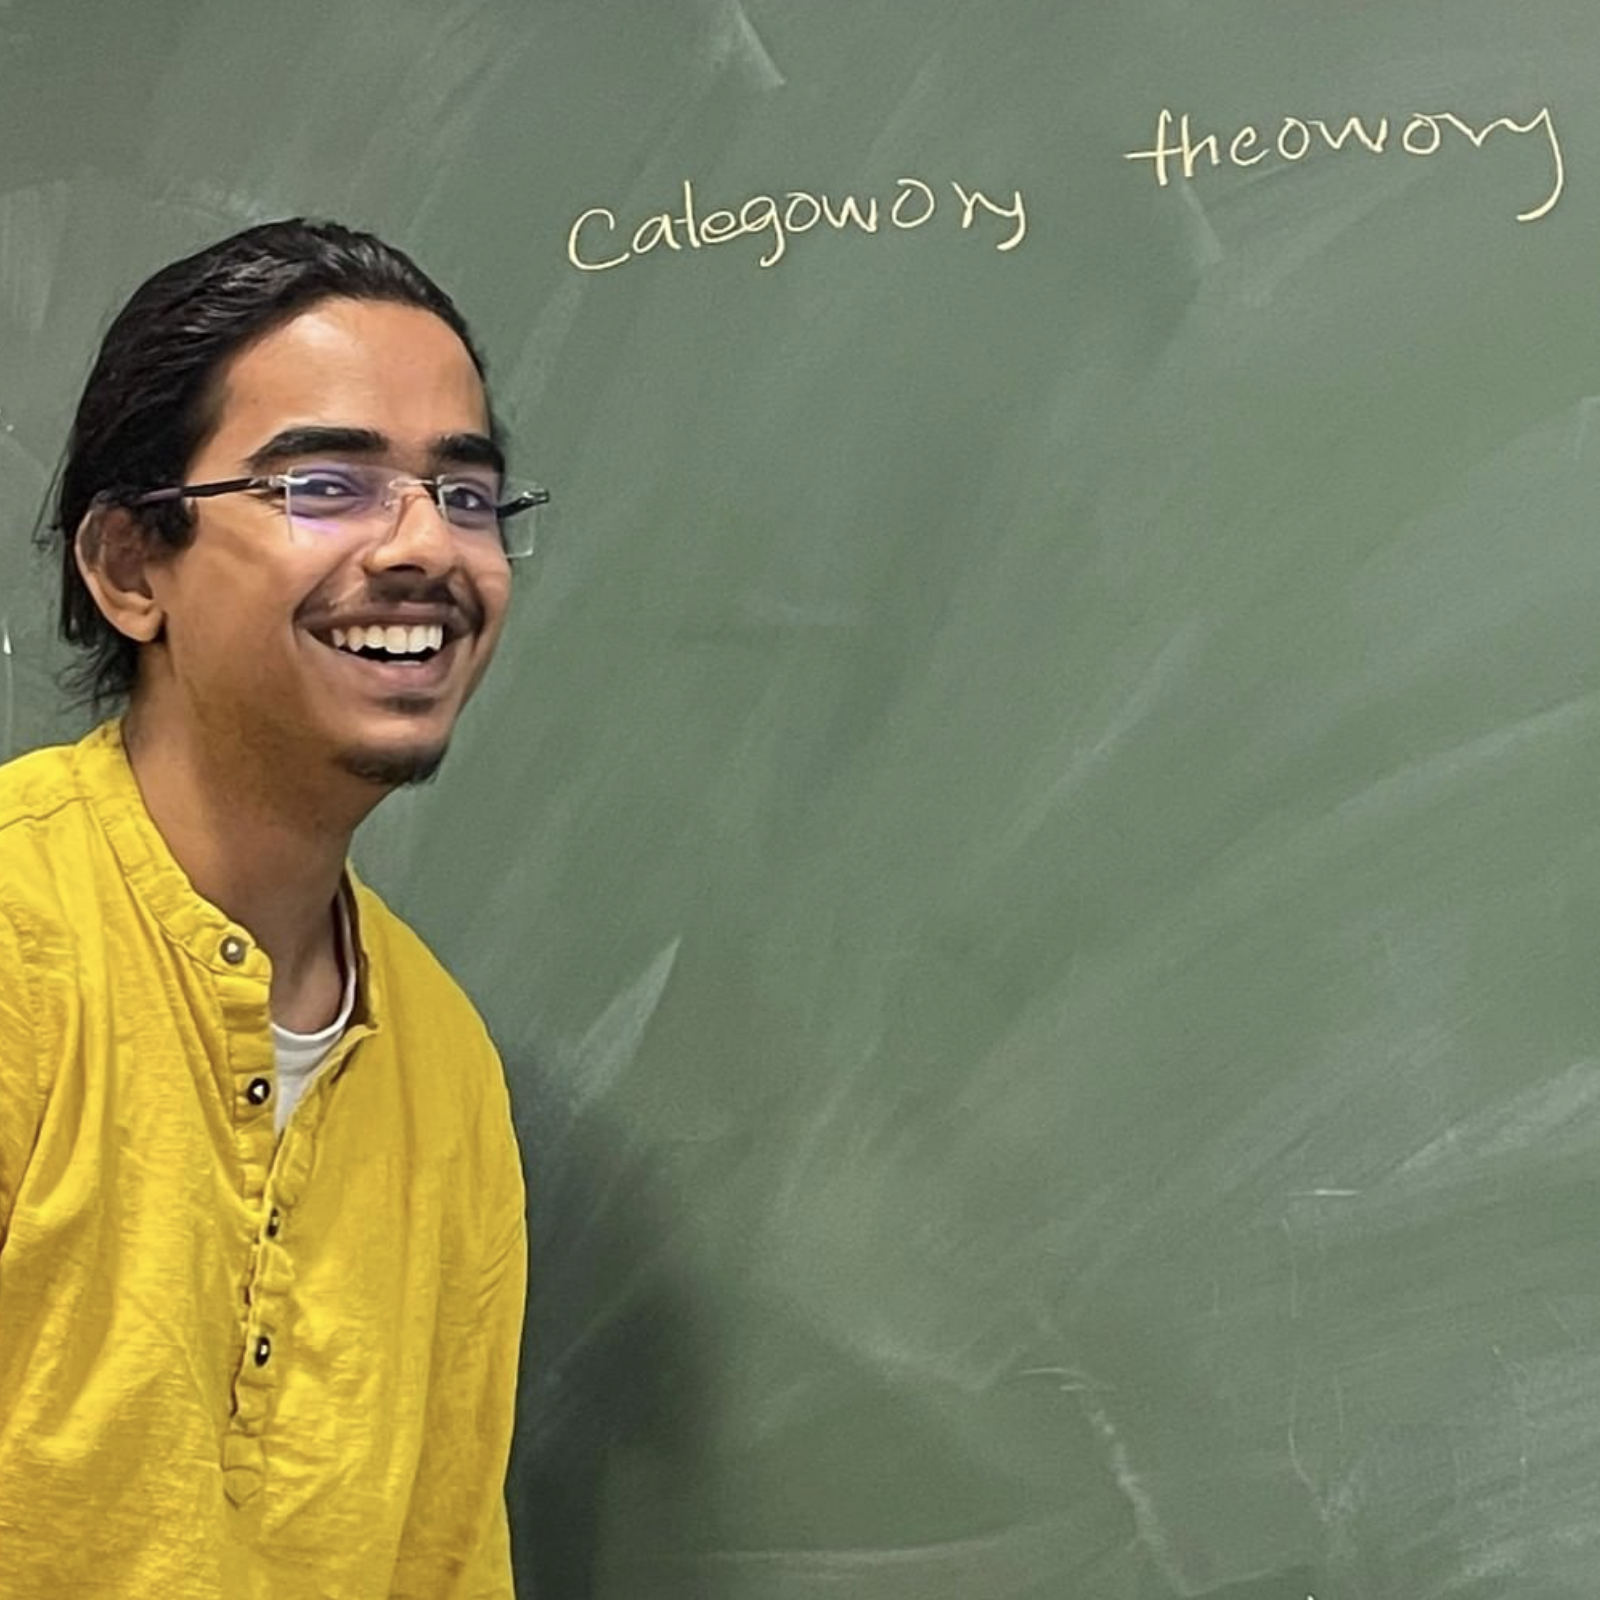 Categowory theowory